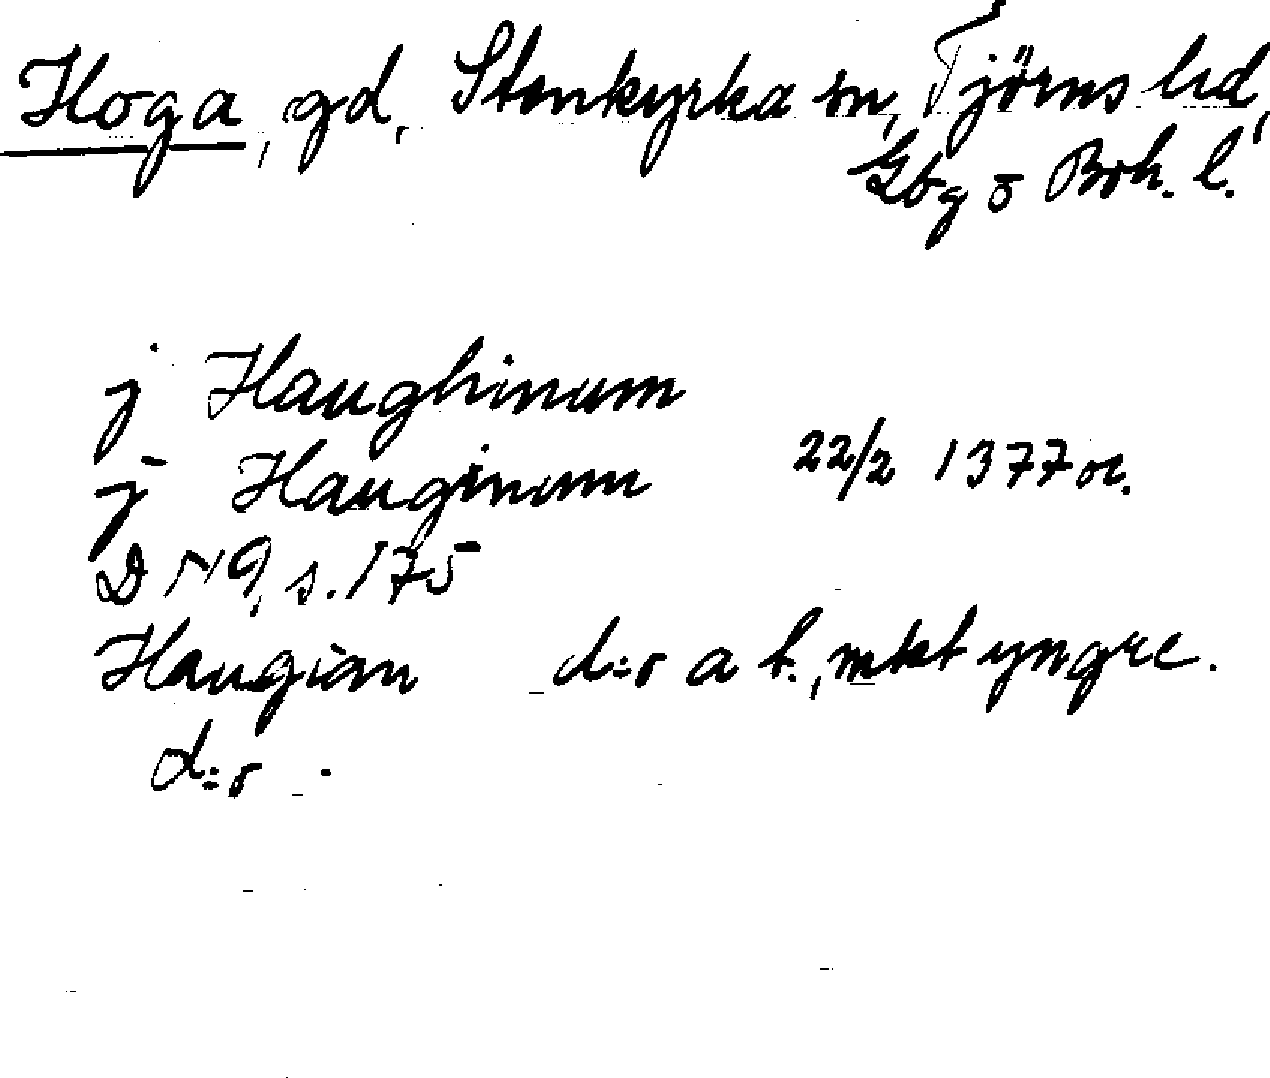 Hoga, gd, Stenkyrka sn, Tjörns hd,
Gbg o Boh. l.
j Haughinum
j Hauginum 22/2 1377 or.
DN 9, s. 175
Haugian d:o a t., mkt yngre.
d:o